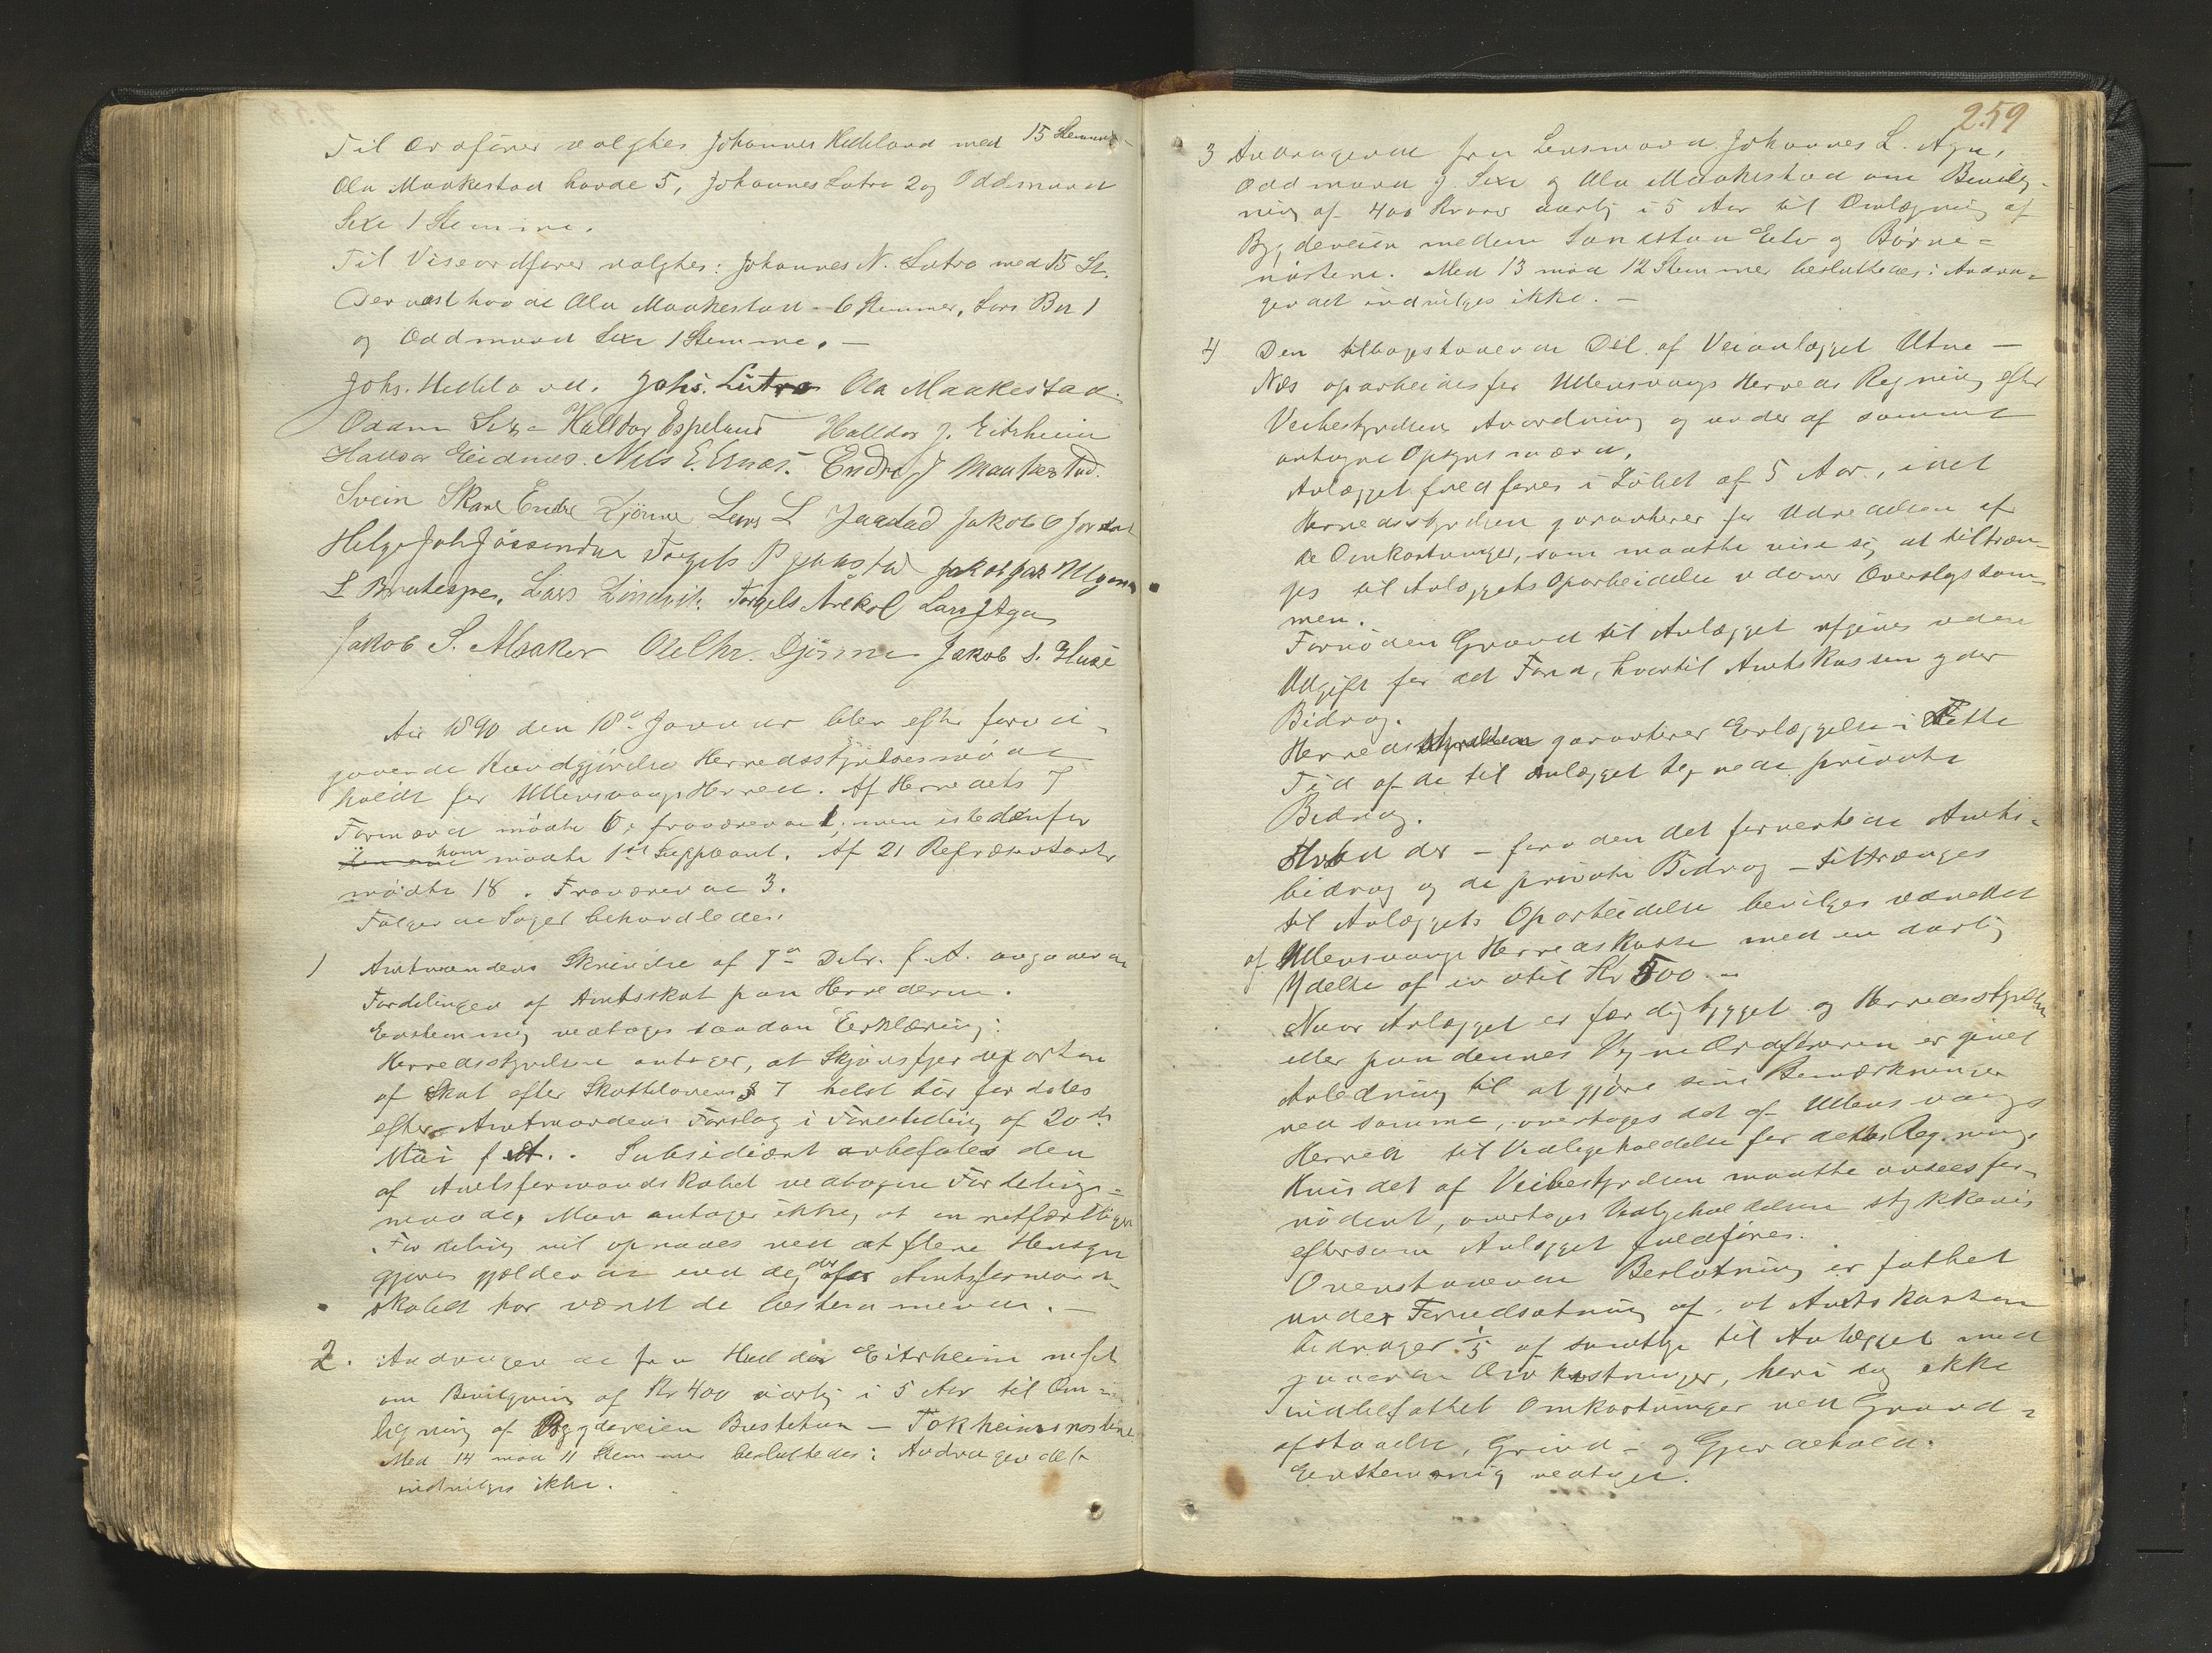 Til Ordfører valgtes Johannes Hedeland med 15 Stemmer
Ola Maakestad havde 5, Johannes Lutro 2 og Oddmund
Sexe 1 Stemme.
Til Viseordfører valgtes: Johannes N. Lutro med 15 St.
Dernæst havde Ola Maakestad 6 Stemmer, Lars Bu 1
og Oddmund Sexe 1 Stemme. —
Johs. Hedeland. Johs. Lutro Ola Maakestad.
Oddm Sexe Halldor Espeland Halldor J. Eitrheim
Halldor Eidnes. Nils E. Ernes. Endre J Maakestad.
Svein Skare Endre Djönne Lars L Jaastad Jakob O Jordal
Helge Joh Jåssendur Torgels P Jaastad Jakob Jak
L Bratespe, Lars Lindvik. Torgels Årekol Lars J Aga
Jakob S. Alsaker Ole Chr. Djönne Jakob S. Huse
Aar 1890 den 18de Januar blev efter forud
gaaende Kundgjørelse Herredsstyrelsesmöde
holdt for Ullensvangs Herred. Af Herredets 7
Formænd mödte 6, fraværende 1, men istedenfor
ham mödte 1ste Suppleant. Af 21 Repræsentanter
mödte 18. Fraværende 3.
Følgende Sager behandledes:
1 Amtmandens Skrivelse af 7de Debr. f. A. angaaende
Fordelingen af Amtsskat paa Herrederne.
Enstemmig vedtoges saadan Erklæring:
Herredsstyrelsen antager, at Skjönsfjerdeparten
af Skat efter Skattelovens § 7 helst bör fordeles
efter Amtmandens Forslag i Forestilling af 20de
Mai f. A. Subsidiært anbefales den
af Amtsformandskabet vedtagne Fordelings=
maade. Man antager ikke, at en retfærdigere
Fordeling vil opnaaes ved at flere Hensyn
gjøres gjældende end de, der for Amtsformand-
skabet har været de bestemmende. —
2. Andragende fra Halldor Eitrheim
om Bevilgning af Kr 400 aarlig i 5 Aar til Om=
lægning af Bygdeveien Bustetun — Tokheimsnosten
Med 14 mod 11 Stemmer besluttedes: Andragendet
indvilges ikke.
259
3 Andragende fra Lensmand Johannes L. Aga,
Oddmund J. Sexe og Ola Maakestad om Bevilg-
ning af 400 Kroner aarlig i 5 Aar til Omlægning af
Bygdeveien mellem Sandstøn Elv og Börve=
nöstene. Med 13 mod 12 Stemmer besluttedes: Andra=
gendet indvilges ikke. —
4 Den tilbagestaaende Del af Veianlægget Utne —
Næs oparbeides for Ullensvangs Herreds Regning efter
Veibestyrelsens Anordning og under af samme
antagne Opsynsmænd.
Anlægget fuldføres i Löbet af 5 Aar, idet
Herredsstyrelsen garanterer for Udredelsen af
de Omkostninger, som maatte vise sig at tiltræn-
ges til Anlæggets Oparbeidelse udover Overslagssum-
men.
Fornöden Grund til Anlægget afgives uden
Udgift for det Fond, hvortil Amtskassen yder
Bidrag.
Herredsstyrelsen garanterer Erlæggelse i rette
Tid af de til Anlægget tegnede private
Bidrag.
Hvad der — foruden det forventede Amts=
bidrag og de private Bidrag — tiltrænges
til Anlæggets Oparbeidelse bevilges udredet
af Ullensvangs Herredskasse med en aarlig
Ydelse af indtil Kr 500. —
Naar Anlægget er færdigbygget og Herredsstyrelsen
eller paa dennes Vegne Ordføreren er givet
Anledning til at gjøre sine Bemærkninger
ved samme, overtages det af Ullensvangs
Herred til Vedligeholdelse for dettes Regning.
Hvis det af Veibestyrelsen maatte ansees for-
nödent, overtages Vedligeholdelsen stykkevis
eftersom Anlægget fuldføres.
Ovenstaaende Beslutning er fattet
under Forudsætning af, at Amtskassen
bidrager 1/5 af samtlige til Anlægget med
gaaende Omkostninger, heri dog ikke
indbefattet Omkostninger ved Grund=
afstaaelse, Grind= og Gjerdehold.
Enstemmig vedtaget.